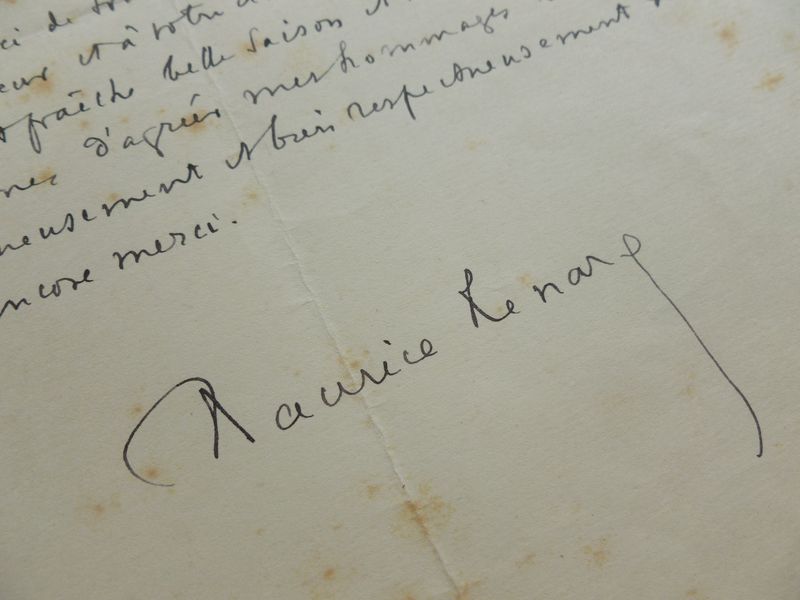 ci de
et à votre
fraîche belle saison et
d'agréer mes hommages
et bien respectueusement
encore merci.
Maurice Renard